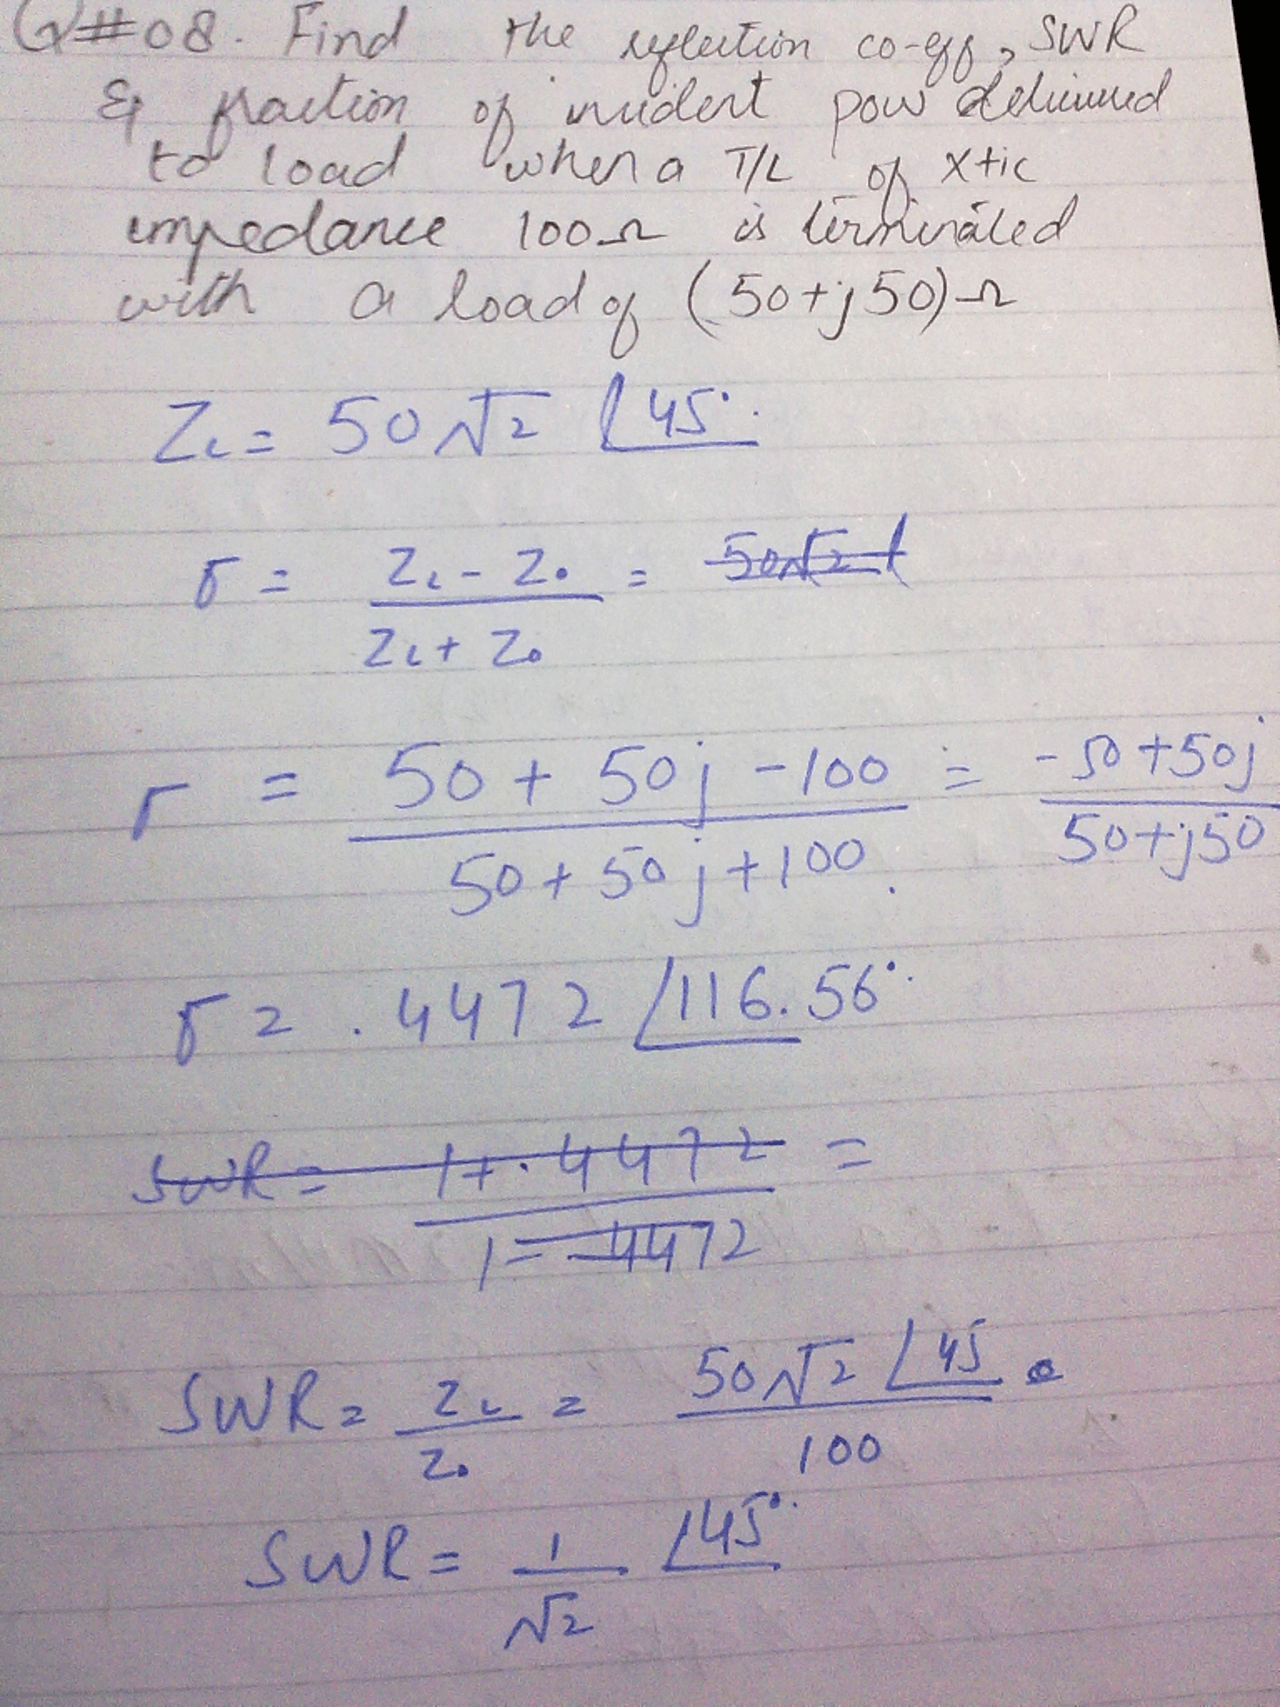 Q#08. Find the reflection co-eff, SWR
& fraction of incident pow delivered
to load when a T/L of x+ic
impedance 100Ω is terminated
with a load of (50+j50)Ω
ZL = 50√2 ∠45°
Γ = ZL - Z0 / ZL + Z0 = 50√2 ∠
Γ = 50 + 50j - 100 / 50 + 50j + 100 = -50+50j / 50+j50
Γ = .4472 ∠116.56°
SWR = 1+.4472 / 1-.4472 =
SWR = ZL / Z0 = 50√2 ∠45 / 100
SWR = 1 / √2 ∠45°